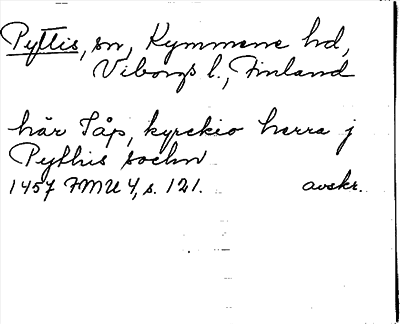 Pyttis, sn, Kymmene hd,
Viborgs l., Finland
här Tåp, kyrckio herra j
Pythis sochn
1457 FMU 4, s. 121. avskr.